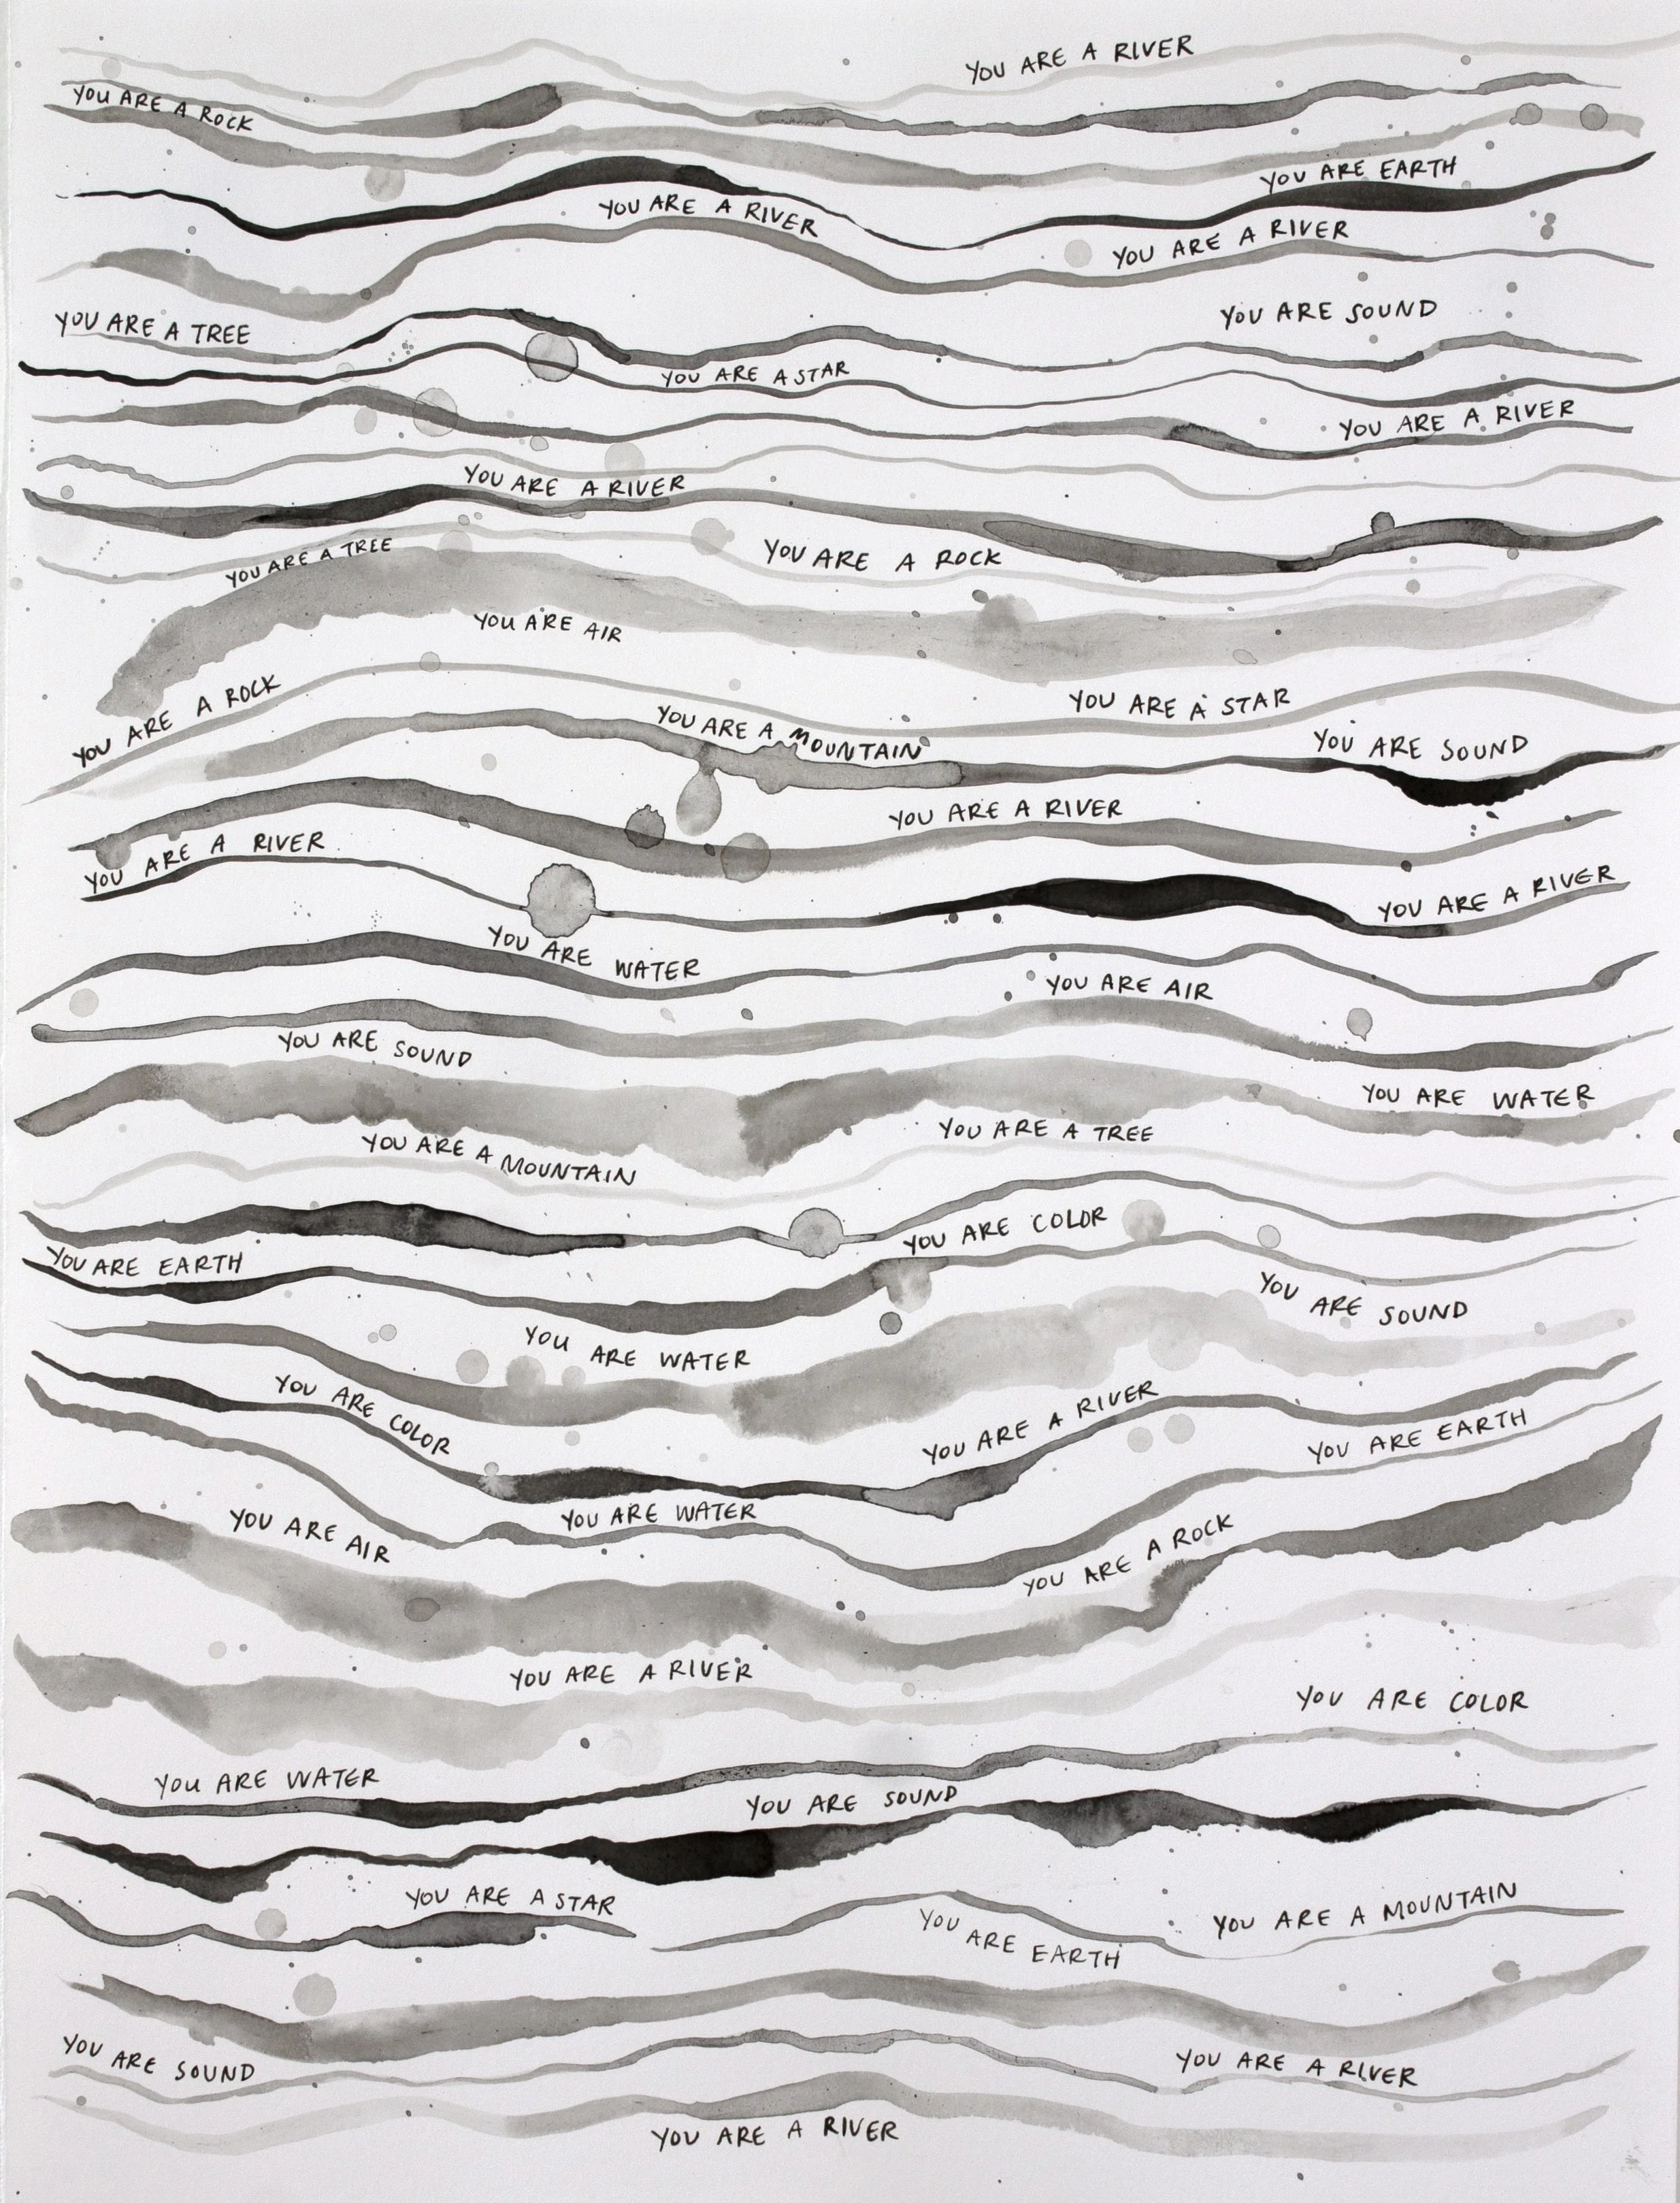 YOU ARE A RIVER
YOU ARE A ROCK
YOU ARE EARTH
YOU ARE A RIVER
YOU ARE A RIVER
YOU ARE SOUND
YOU ARE A TREE
YOU ARE A STAR
YOU ARE A RIVER
YOU ARE A RIVER
YOU ARE A TREE
YOU ARE A ROCK
YOU ARE AIR
YOU ARE A ROCK
YOU ARE A STAR
YOU ARE A MOUNTAIN
YOU ARE SOUND
YOU ARE A RIVER
YOU ARE A RIVER
YOU ARE A RIVER
YOU ARE WATER
YOU ARE AIR
YOU ARE SOUND
YOU ARE WATER
YOU ARE A TREE
YOU ARE A MOUNTAIN
YOU ARE COLOR
YOU ARE EARTH
YOU ARE SOUND
YOU ARE WATER
YOU ARE COLOR
YOU ARE A RIVER
YOU ARE EARTH
YOU ARE WATER
YOU ARE AIR
YOU ARE A ROCK
YOU ARE A RIVER
YOU ARE COLOR
YOU ARE WATER
YOU ARE SOUND
YOU ARE A STAR
YOU ARE A MOUNTAIN
YOU ARE EARTH
YOU ARE SOUND
YOU ARE A RIVER
YOU ARE A RIVER